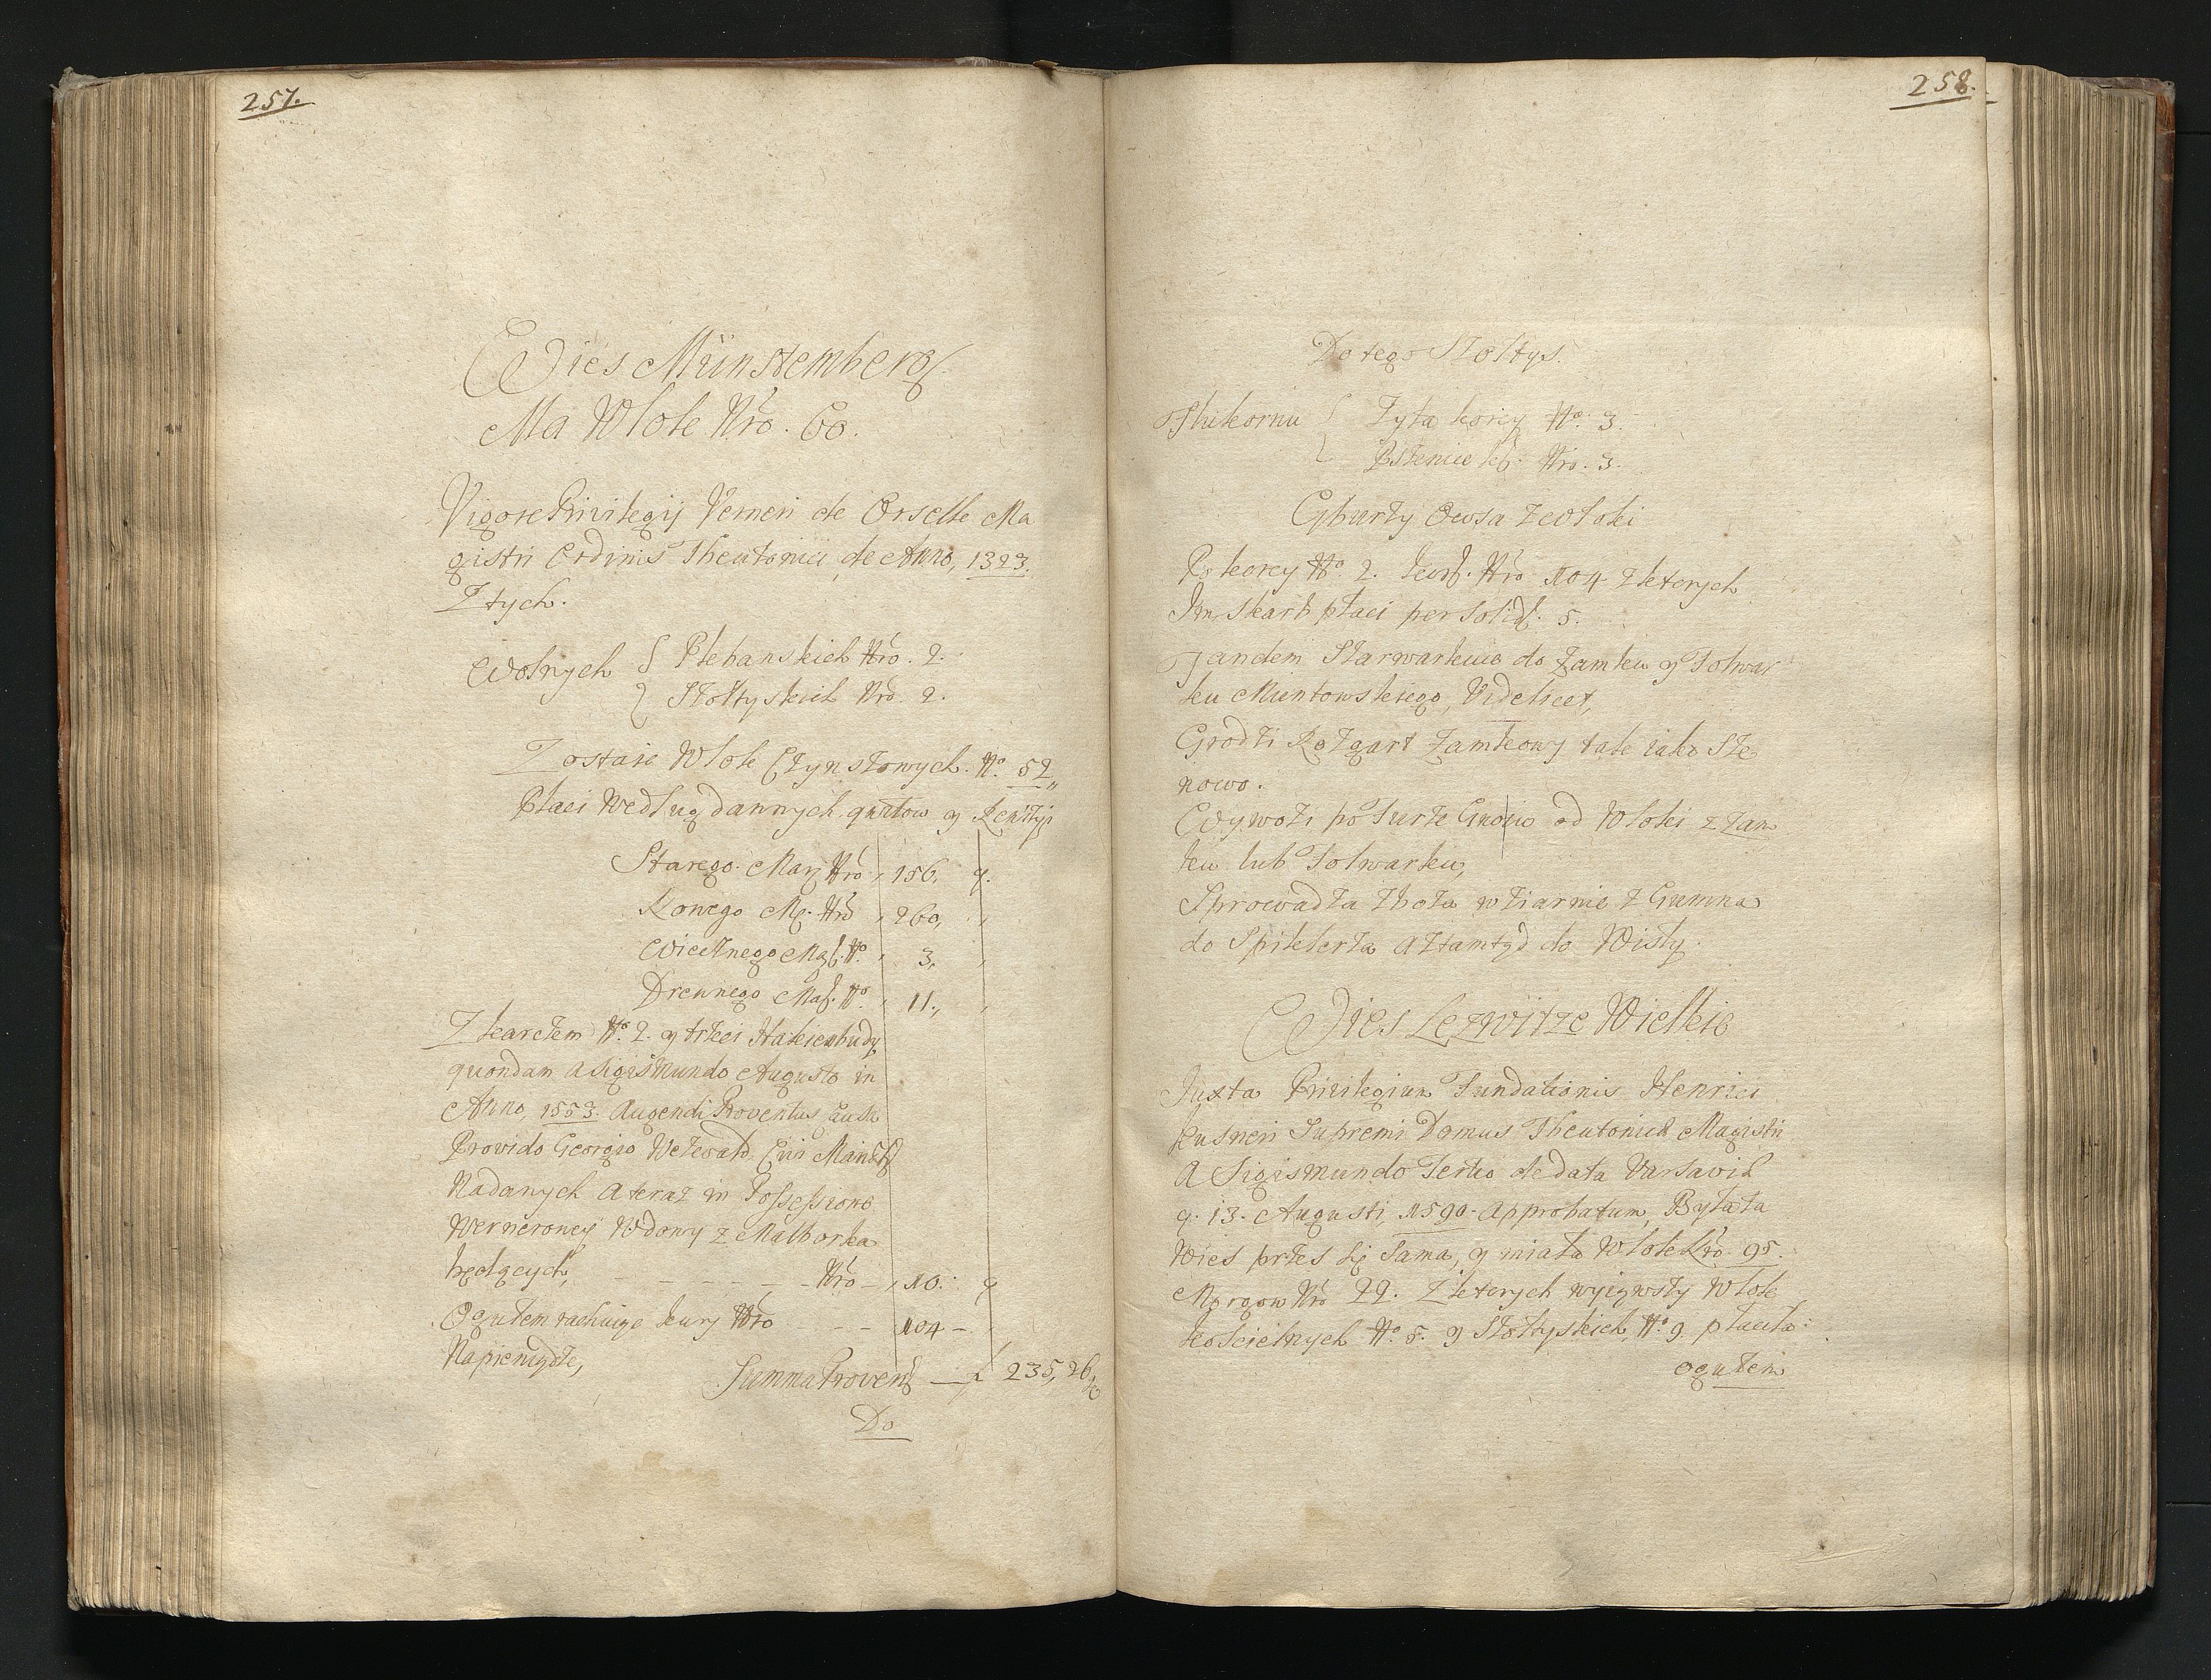 257.
Wies Münstemberg
Ma Wlok Nro. 60.
Vigore Privilegij Verneri de Orselle Ma
gistri Ordinis Theutonici, de Anno, 1323.
Z tych.
Wolnych { Plebanskich Nro. 2.
Szołtyskich Nro. 2.
Zostaie Wlok Czynszowych. No. 52
Płaci Według dannych
Starego Mar Nro. 156. q.
Nowego M. Nro 260,
Wiecznego No. 3,
Drewnego No. 11.,
Z karczem No. 2. y trzci
quondam a Sigismundo Augusto in
Anno, 1553. Augendi Proventus Causa
Provido Georgio
Nadanych a teraz in Possessione
Wernerowey Wdowy z Malborka
będących, - - - - - - Nro - 10. q
Ogułem rachuiąc kury Nro - - - 104 -
Na pieniądze,
Summa Provent 235, 26,
Do
258.
Do tego Szołtys.
Żyta korcy No. 3.
Pszenice Nro. 3.
Gburzy Owsa z włoki
Po korcy No. 2. Nro 104 z ktorych
Im skarb płaci per Solid. 5.
Tandem Szarwarkuie do Zamku y Folwar
ku Mientowskiego, Videlicet,
Grodzi Rozgart Zamkowy tak iako Sta
nowo.
Wywozi po Furze Gnoiu od Włoki z Zam
ku lub Folwarku,
Sprowadza Zboża w Ziarnie z Gumna
do Spiklerza a Ztamtąd do Wisły.
Wies Lezwitze Wielkie
Juxta Privilegium Fundationis Henrici
Supremi Domus Theutonica Magistri
A Sigismundo Tertio de data Varsaviæ
q. 13. Augusti, 1590. Approbatum, Była ta
Wies przes się Sama, y miała Wlok Nro. 95.
Morgow Nro 22. Z ktorych wyiąwszy Wlok
kościelnych No. 5. y Szołtyskich No. 9 płaciła
ogułem